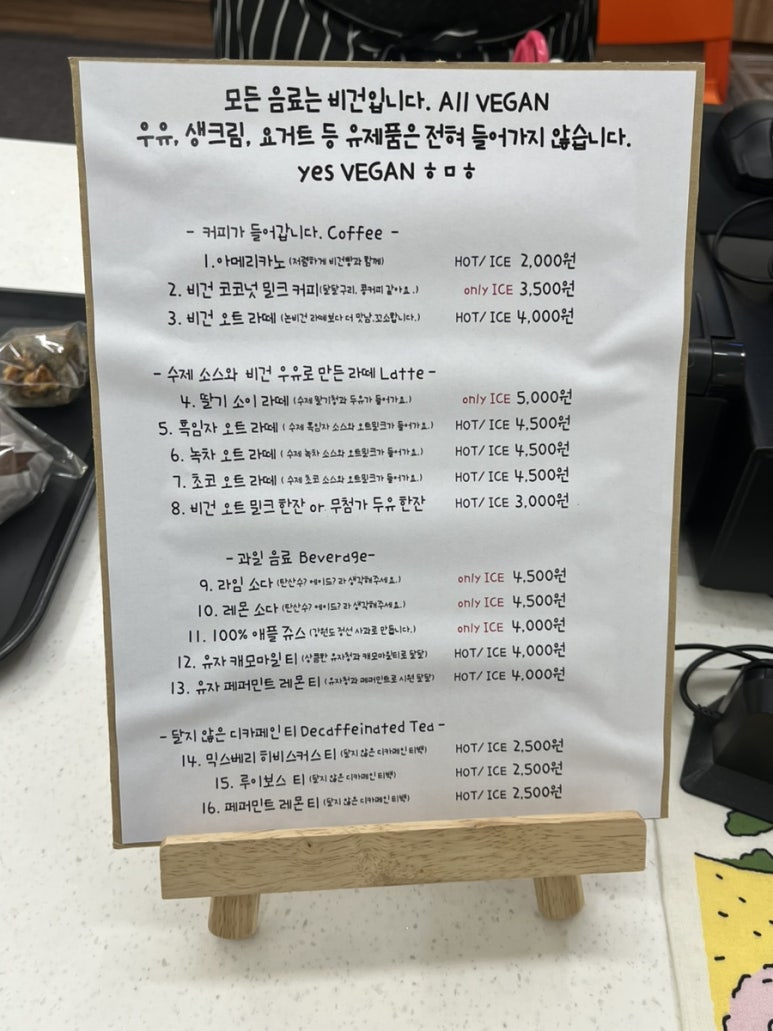 모든 음료는 비건입니다. All VEGAN
우유, 생크림, 요거트 등 유제품은 전혀 들어가지 않습니다.
yes VEGAN ㅎㅁㅎ
- 커피가 들어갑니다. Coffee -
1. 아메리카노 (저렴하게 비건빵과 함께) HOT/ ICE 2,000원
2. 비건 코코넛 밀크 커피(달달구리. 콩커피 같아요.) only ICE 3,500원
3. 비건 오트 라떼 (논비건 라떼보다 더 맛남.꼬소합니다.) HOT/ ICE 4,000원
- 수제 소스와 비건 우유로 만든 라떼 Latte -
4. 딸기 소이 라떼 (수제 딸기청과 두유가 들어가요.) only ICE 5,000원
5. 흑임자 오트 라떼 ( 수제 흑임자 소스와 오트밀크가 들어가요.) HOT/ ICE 4,500원
6. 녹차 오트 라떼 ( 수제 녹차 소스와 오트밀크가 들어가요.) HOT/ ICE 4,500원
7. 초코 오트 라떼 ( 수제 초코 소스와 오트밀크가 들어가요.) HOT/ ICE 4,500원
8. 비건 오트 밀크 한잔 or 무첨가 두유 한잔 HOT/ ICE 3,000원
- 과일 음료 Beverage-
9. 라임 소다 (탄산수? 에이드? 라 생각해주세요.) only ICE 4,500원
10. 레몬 소다 (탄산수? 에이드? 라 생각해주세요.) only ICE 4,500원
11. 100% 애플 쥬스 (강원도 정선 사과로 만듭니다.) only ICE 4,000원
12. 유자 캐모마일 티 (상큼한 유자청과 캐모마일티로 달달) HOT/ ICE 4,000원
13. 유자 페퍼민트 레몬 티 (유자청과 페퍼민트로 시원 달달) HOT/ ICE 4,000원
- 달지 않은 디카페인 티 Decaffeinated Tea -
14. 믹스베리 히비스커스 티 (달지 않은 디카페인 티백) HOT/ ICE 2,500원
15. 루이보스 티 (달지 않은 디카페인 티백) HOT/ ICE 2,500원
16. 페퍼민트 레몬 티 (달지 않은 디카페인 티백) HOT/ ICE 2,500원